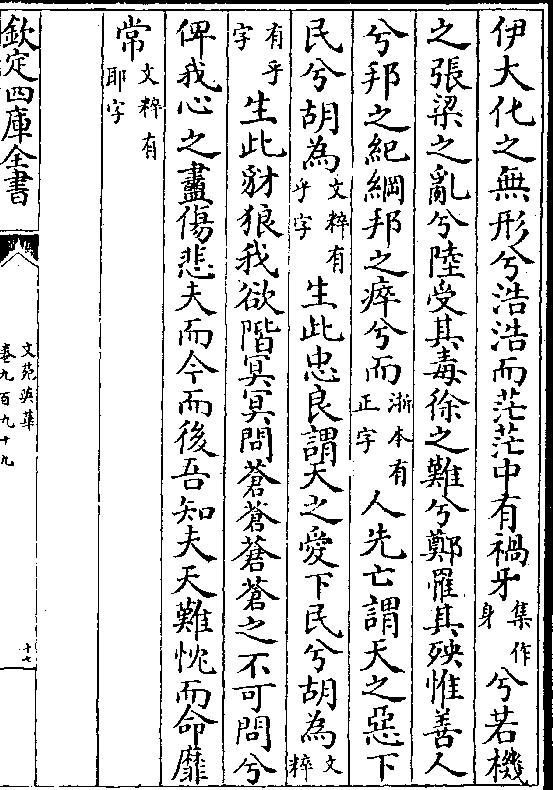 伊大化之無形兮浩浩而茫茫中有禍牙集作身兮若機
之張梁之亂兮陸受其毒徐之難兮鄭罹其殃惟善人
兮邦之紀綱邦之瘁兮而浙本有正字人先亡謂天之惡下
民兮胡為文粹有乎字生此忠良謂天之愛下民兮胡為文粹
有乎字生此豺狼我欲階冥冥問蒼蒼蒼蒼之不可問兮
俾我心之盡傷悲夫而今而後吾知夫天難忱而命靡
常文粹有耶字
欽定四庫全書
文苑英華
卷九百九十九
十七